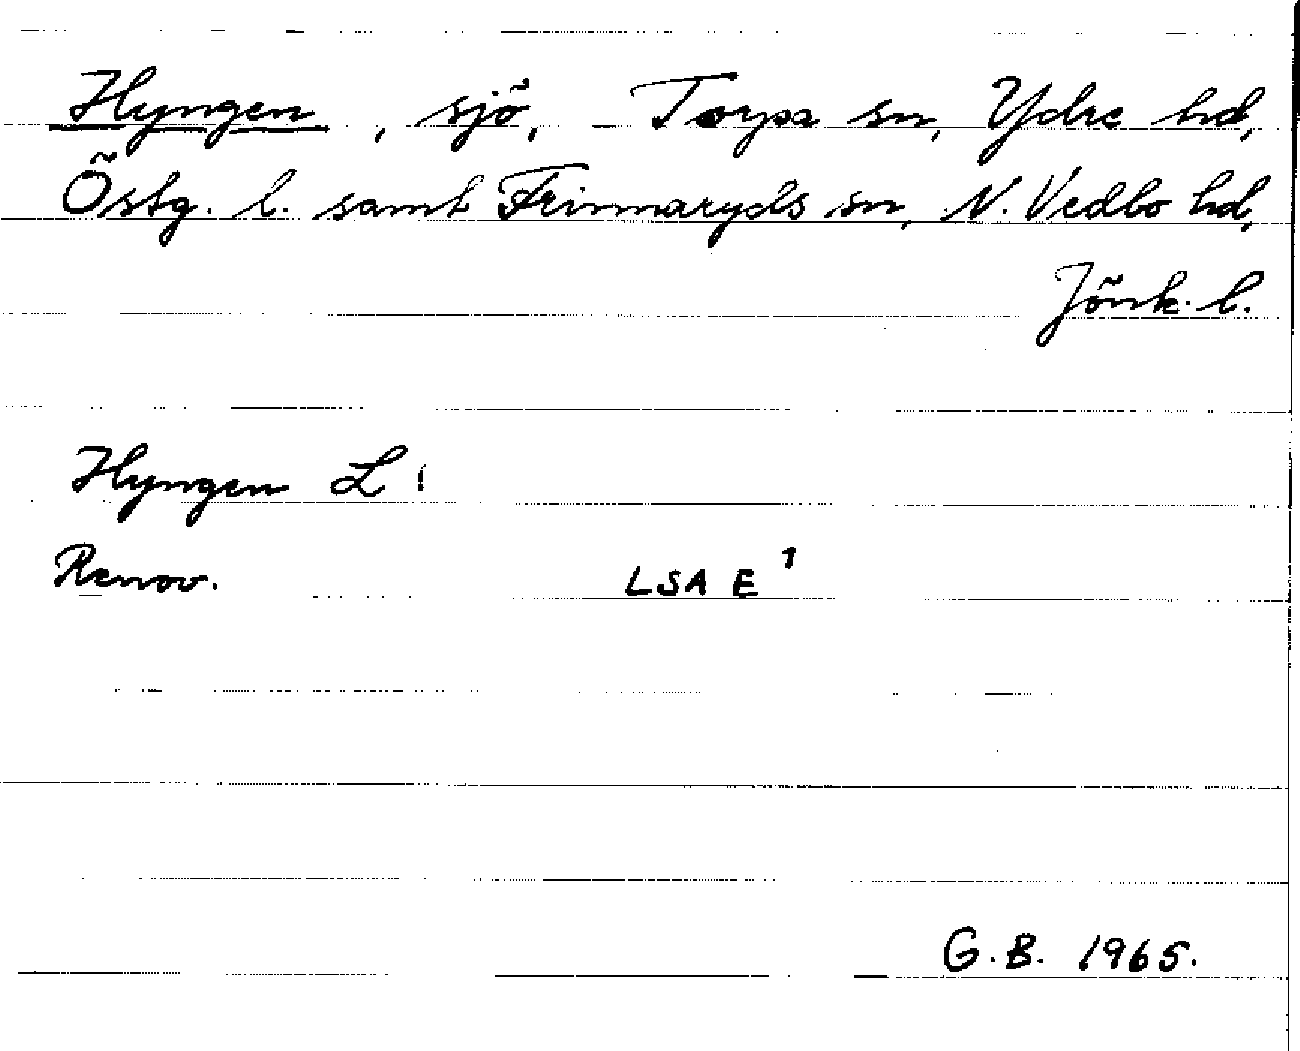 Hyngen, sjö, Torpa sn, Ydre hd,
Östg. l. samt Frinnaryds sn, N. Vedbo hd,
Jönk. l.
Hyngen L!
Renov. LSA E¹
G.B. 1965.